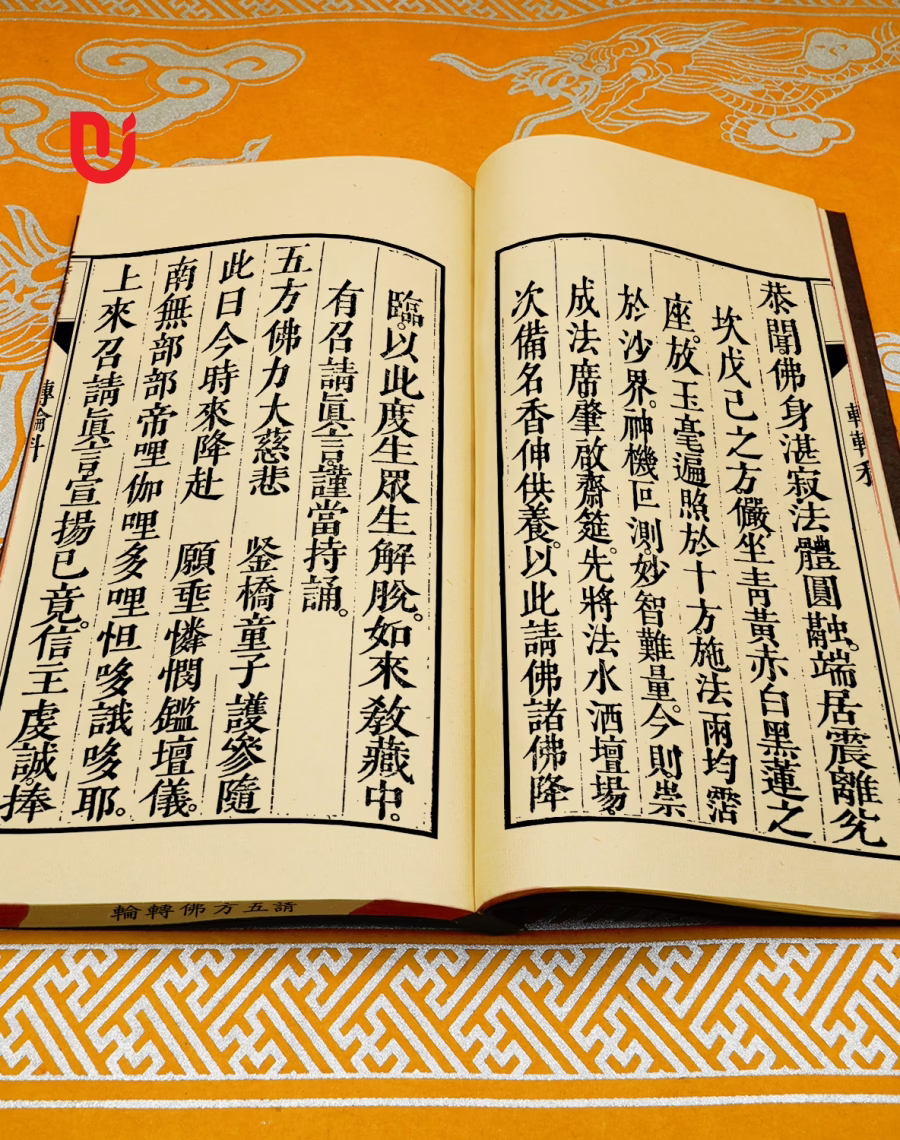 恭聞。佛身湛寂。法體圓融。端居震離兊
坎戊己之方。儼坐青黃赤白黑蓮之
座。放玉毫遍照於十方。施法雨均霑
於沙界。神機叵測。妙智難量。今則崇
成法席。肇啟齋筵。先將法水洒壇場。
次備名香伸供養。以此請佛諸佛降
臨。以此度生眾生解脫。如來教藏中。
有召請眞言。謹當持誦。
五方佛力大慈悲　鋻橋童子護參隨
此日今時來降赴　願垂憐憫鑑壇儀。
南無部部帝哩伽哩多哩怛哆誐哆耶。
上來召請眞言宣揚已竟。信主虔誠。捧
轉輪
請五方佛轉輪